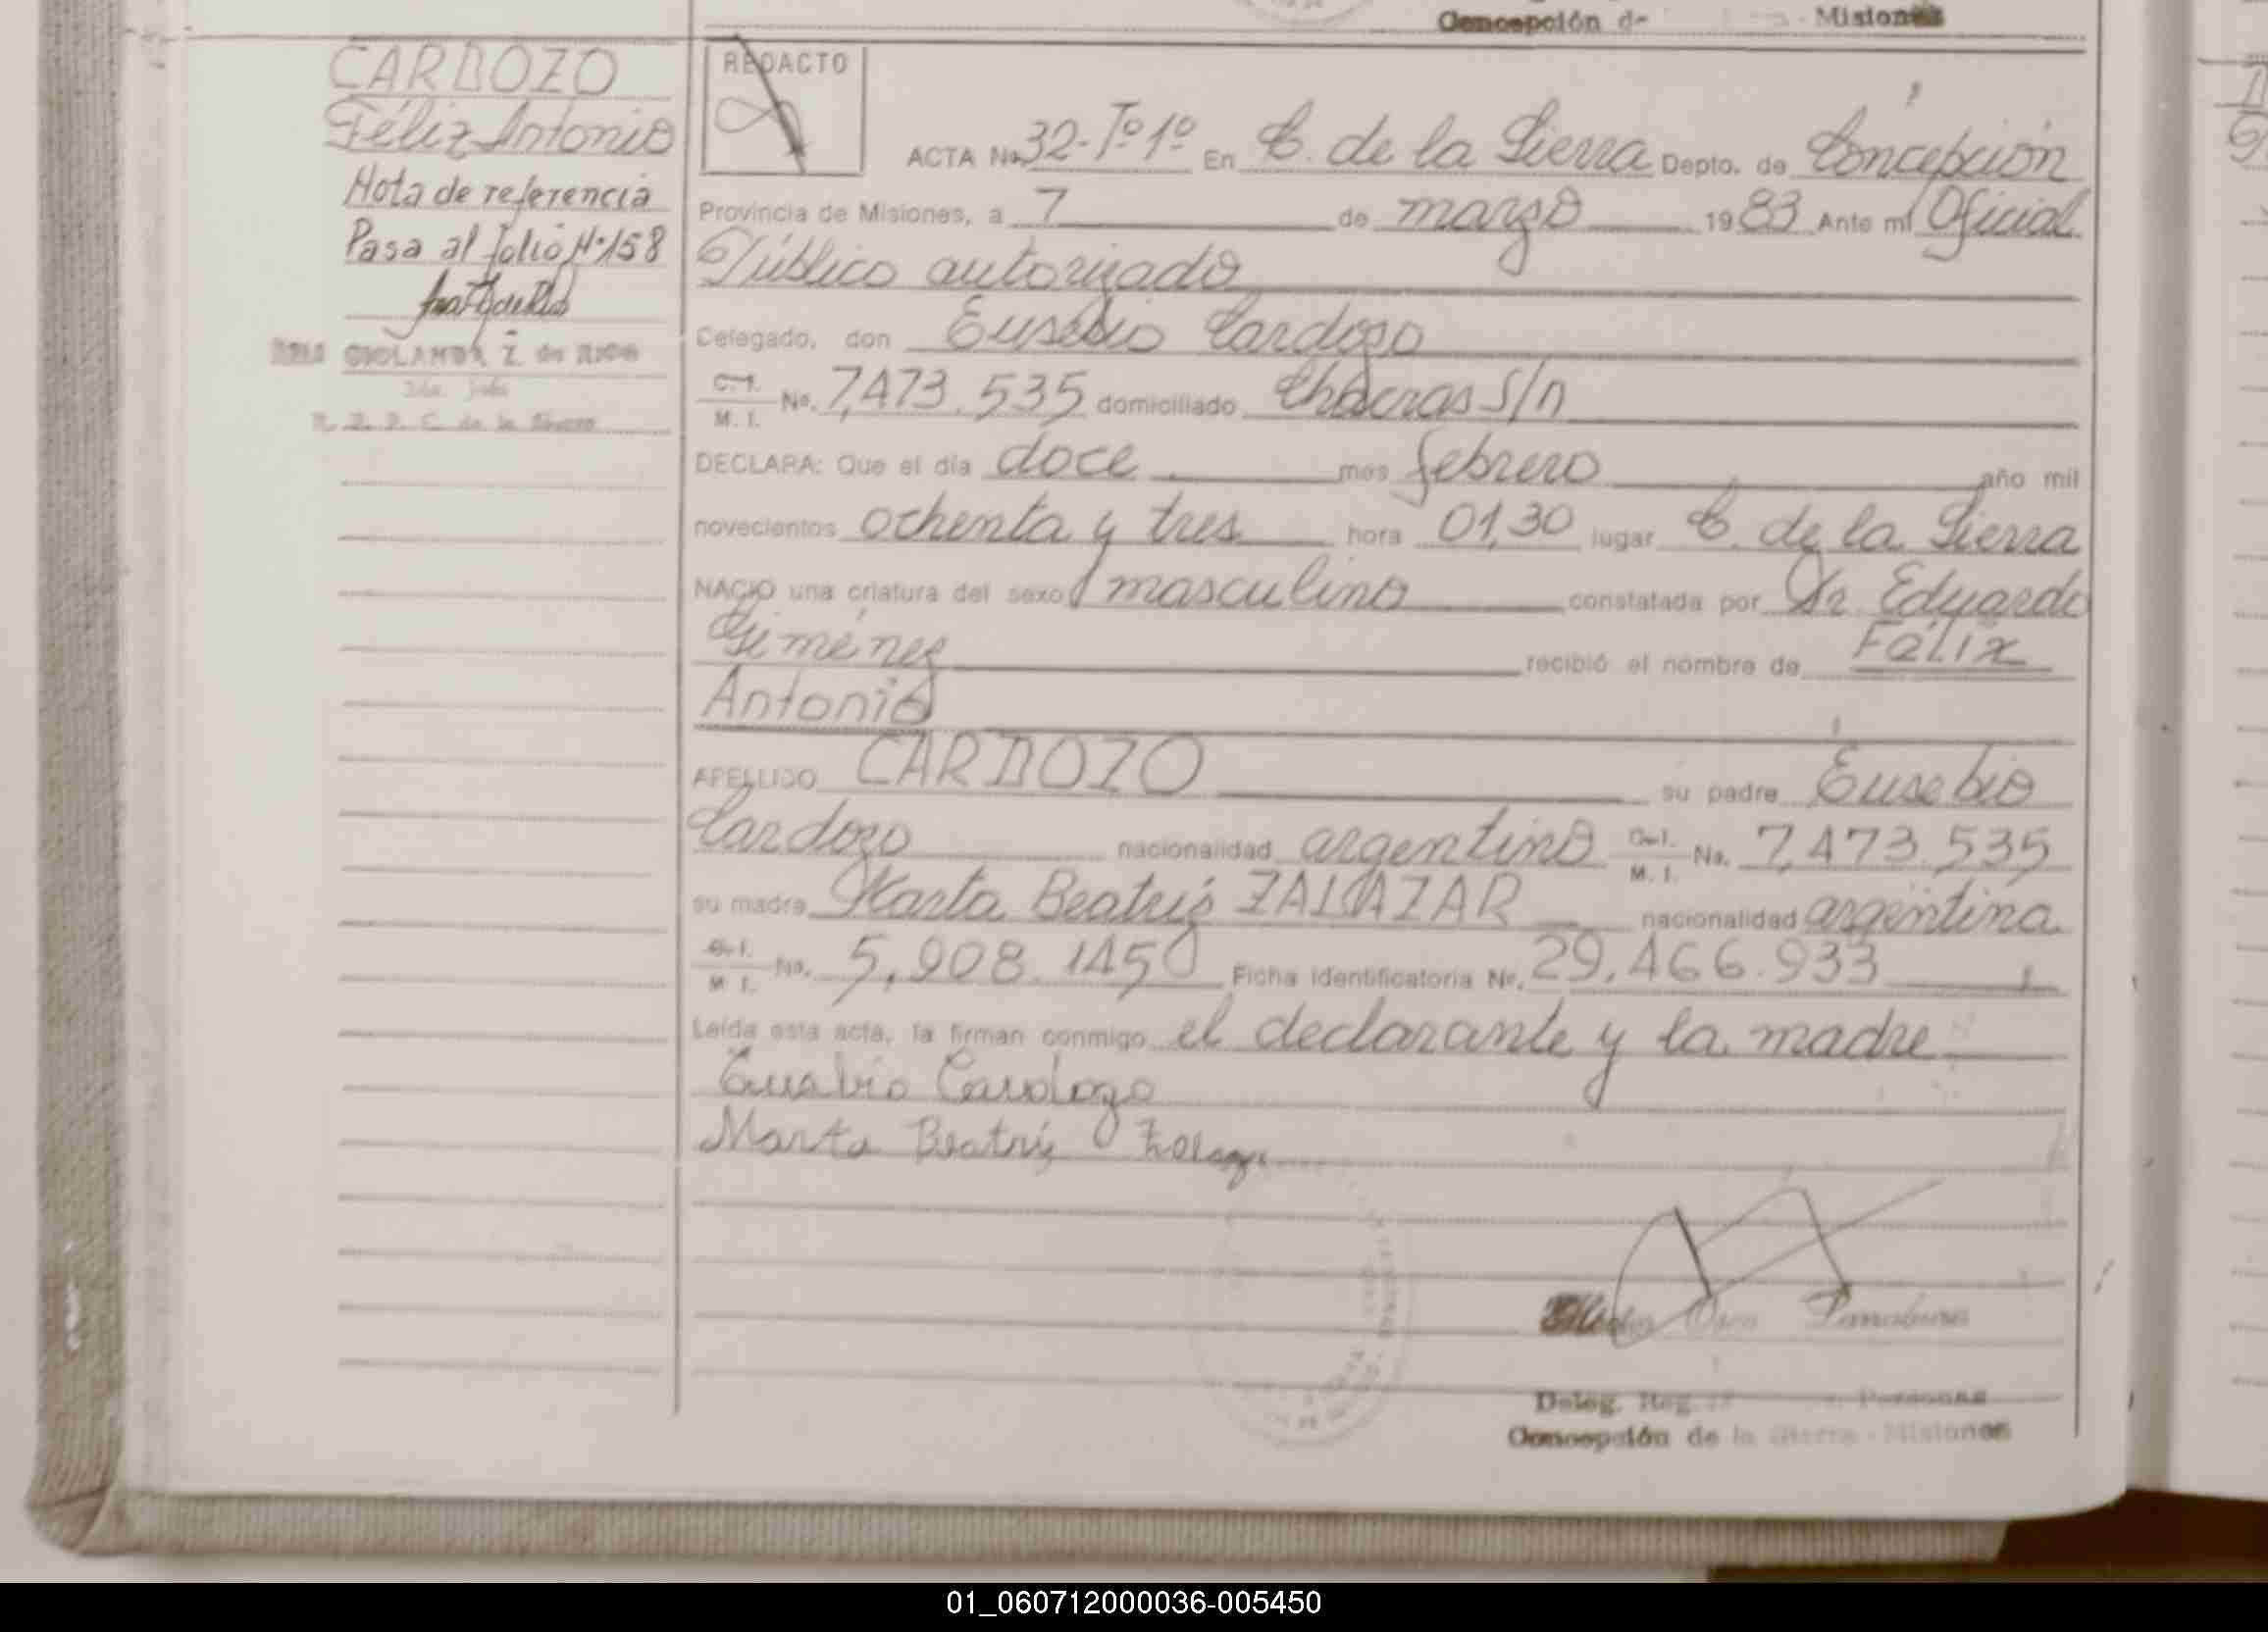 Concepción de Misiones
CARDOZO
Féliz Antonio
Nota de referencia
Pasa al folio Nº 158
GIOLANDA Z. de RIOS
REDACTO
ACTA No. 32-Tº1º En C. de la Sierra Depto. de Concepción
Provincia de Misiones, a 7 de marzo 1983 Ante mí Oficial
Público autorizado
Delegado, don Eusebio Cardozo
C. I. M. I. No. 7,473.535 domiciliado Chacras S/n
DECLARA: Que el día doce mes febrero año mil
novecientos ochenta y tres hora 01,30 lugar C. de la Sierra
NACIO una criatura del sexo masculino constatada por Dr. Eduardo
Giménez recibió el nombre de Félix
Antonio
APELLIDO CARDOZO su padre Eusebio
Cardozo nacionalidad argentino C. I. M. I. No. 7,473.535
su madre Marta Beatriz ZALAZAR nacionalidad argentina
C. I. M. I. No. 5,908.1450 Ficha Identificatoria No. 29.466.933
Leída esta acta, la firman conmigo el declarante y la madre
Eusebio Cardozo
Marta Beatriz
Deleg. Reg. Personas
Concepción de la Sierra - Misiones
01_060712000036-005450